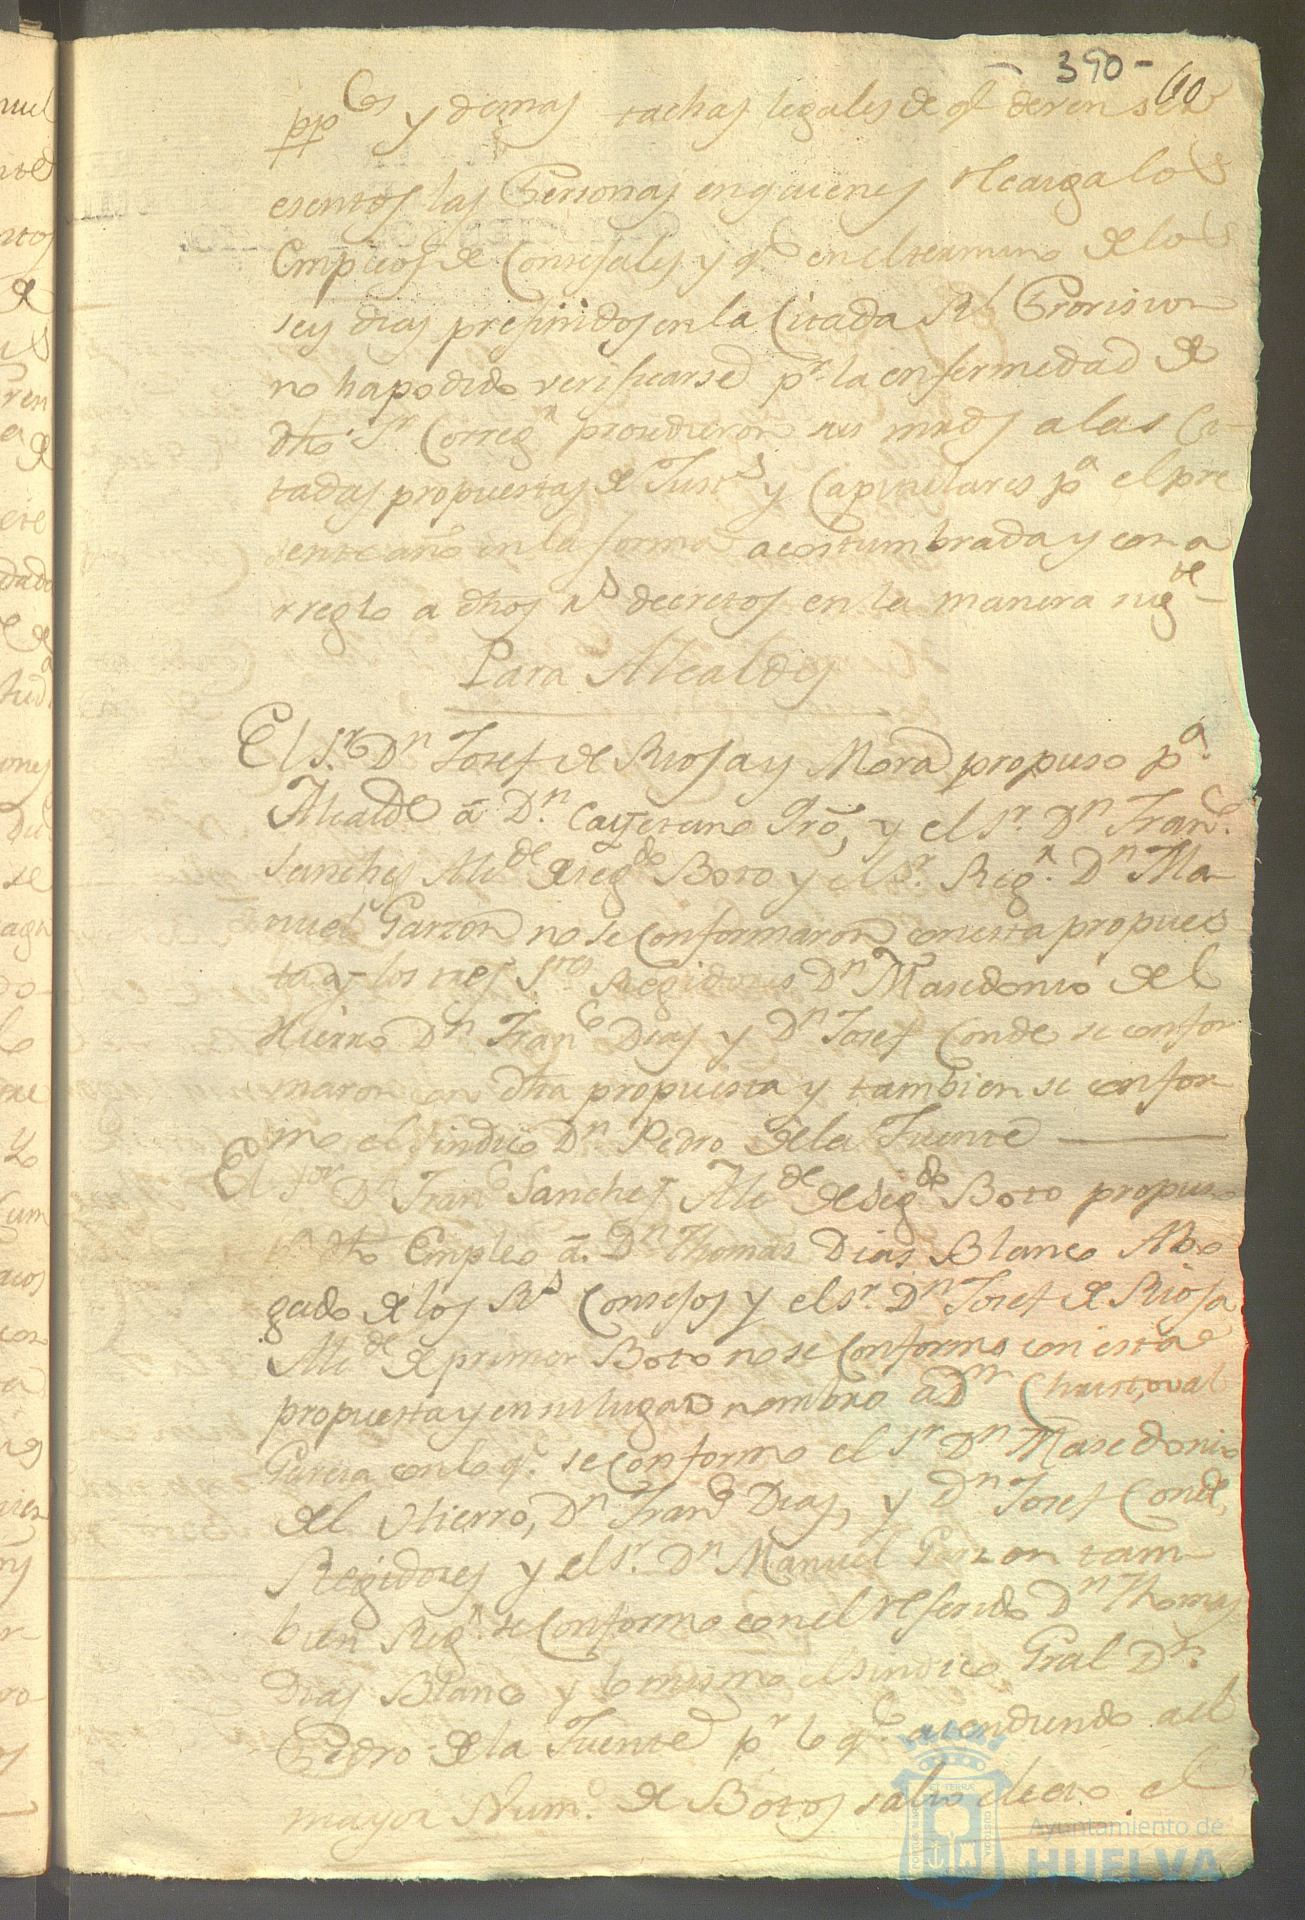 390- 60
ppces y demas tachas legales de qe deven ser
esentos las Personas en quienes recaiga los
Empleos de Consejales y qe en el termino de los
seis dias prefinidos en la Citada Rl Provision
no ha podido verificarse pr. la enfermedad de
dho Sr Corregr procedieron sus mrds a las Ci-
tadas propuestas de Justs y Capitulares pa el pre
sente año en la forma acostumbrada y con a
rreglo a dhos Rs decretos en la manera sigte
Para Alcaldes
El Sr. Dn Josef de Rioja y Mora propuso pa.
Alcalde á Dn. Cayetano Pró, y el Sr. Dn Franco.
Sanches Alcde de segdo Boto y el Sr. Regr. Dn Ma-
nuel Garzon no se Conformaron con esta propues
ta y los tres Sres Regidores Dn Masedonio del
Hierro Dn Franco Dias y Dn Josef Conde se confor
maron con dha propuesta y tambien se confor
mo el sindico Dn. Pedro de la Fuente
El Sor Dn Franco Sanches Alcde de segdo Boto propuso
pa dho Empleo á Dn Thomas Dias Blanco Abo
gado de los Rs Consejos y el Sr. Dn Josef de Rioja
Alcde de primer Boto no se Conformo con esta
propuesta y en su lugar nombro á Dn Christoval
Garcia con lo qe. se conformo el Sr Dn Masedonio
del Hierro, Dn Franco Dias, y Dn Josef Conde,
Regidores y el Sr. Dn Manuel Garzon tam-
bien Regr. se Conformo con el referido Dn Thomas
Dias Blanco y lo mismo el sindico Gral Dn.
Pedro de la Fuente pr lo qe. atendiendo al
mayor Numo. de Botos salio electo el
Ayuntamiento de
HUELVA